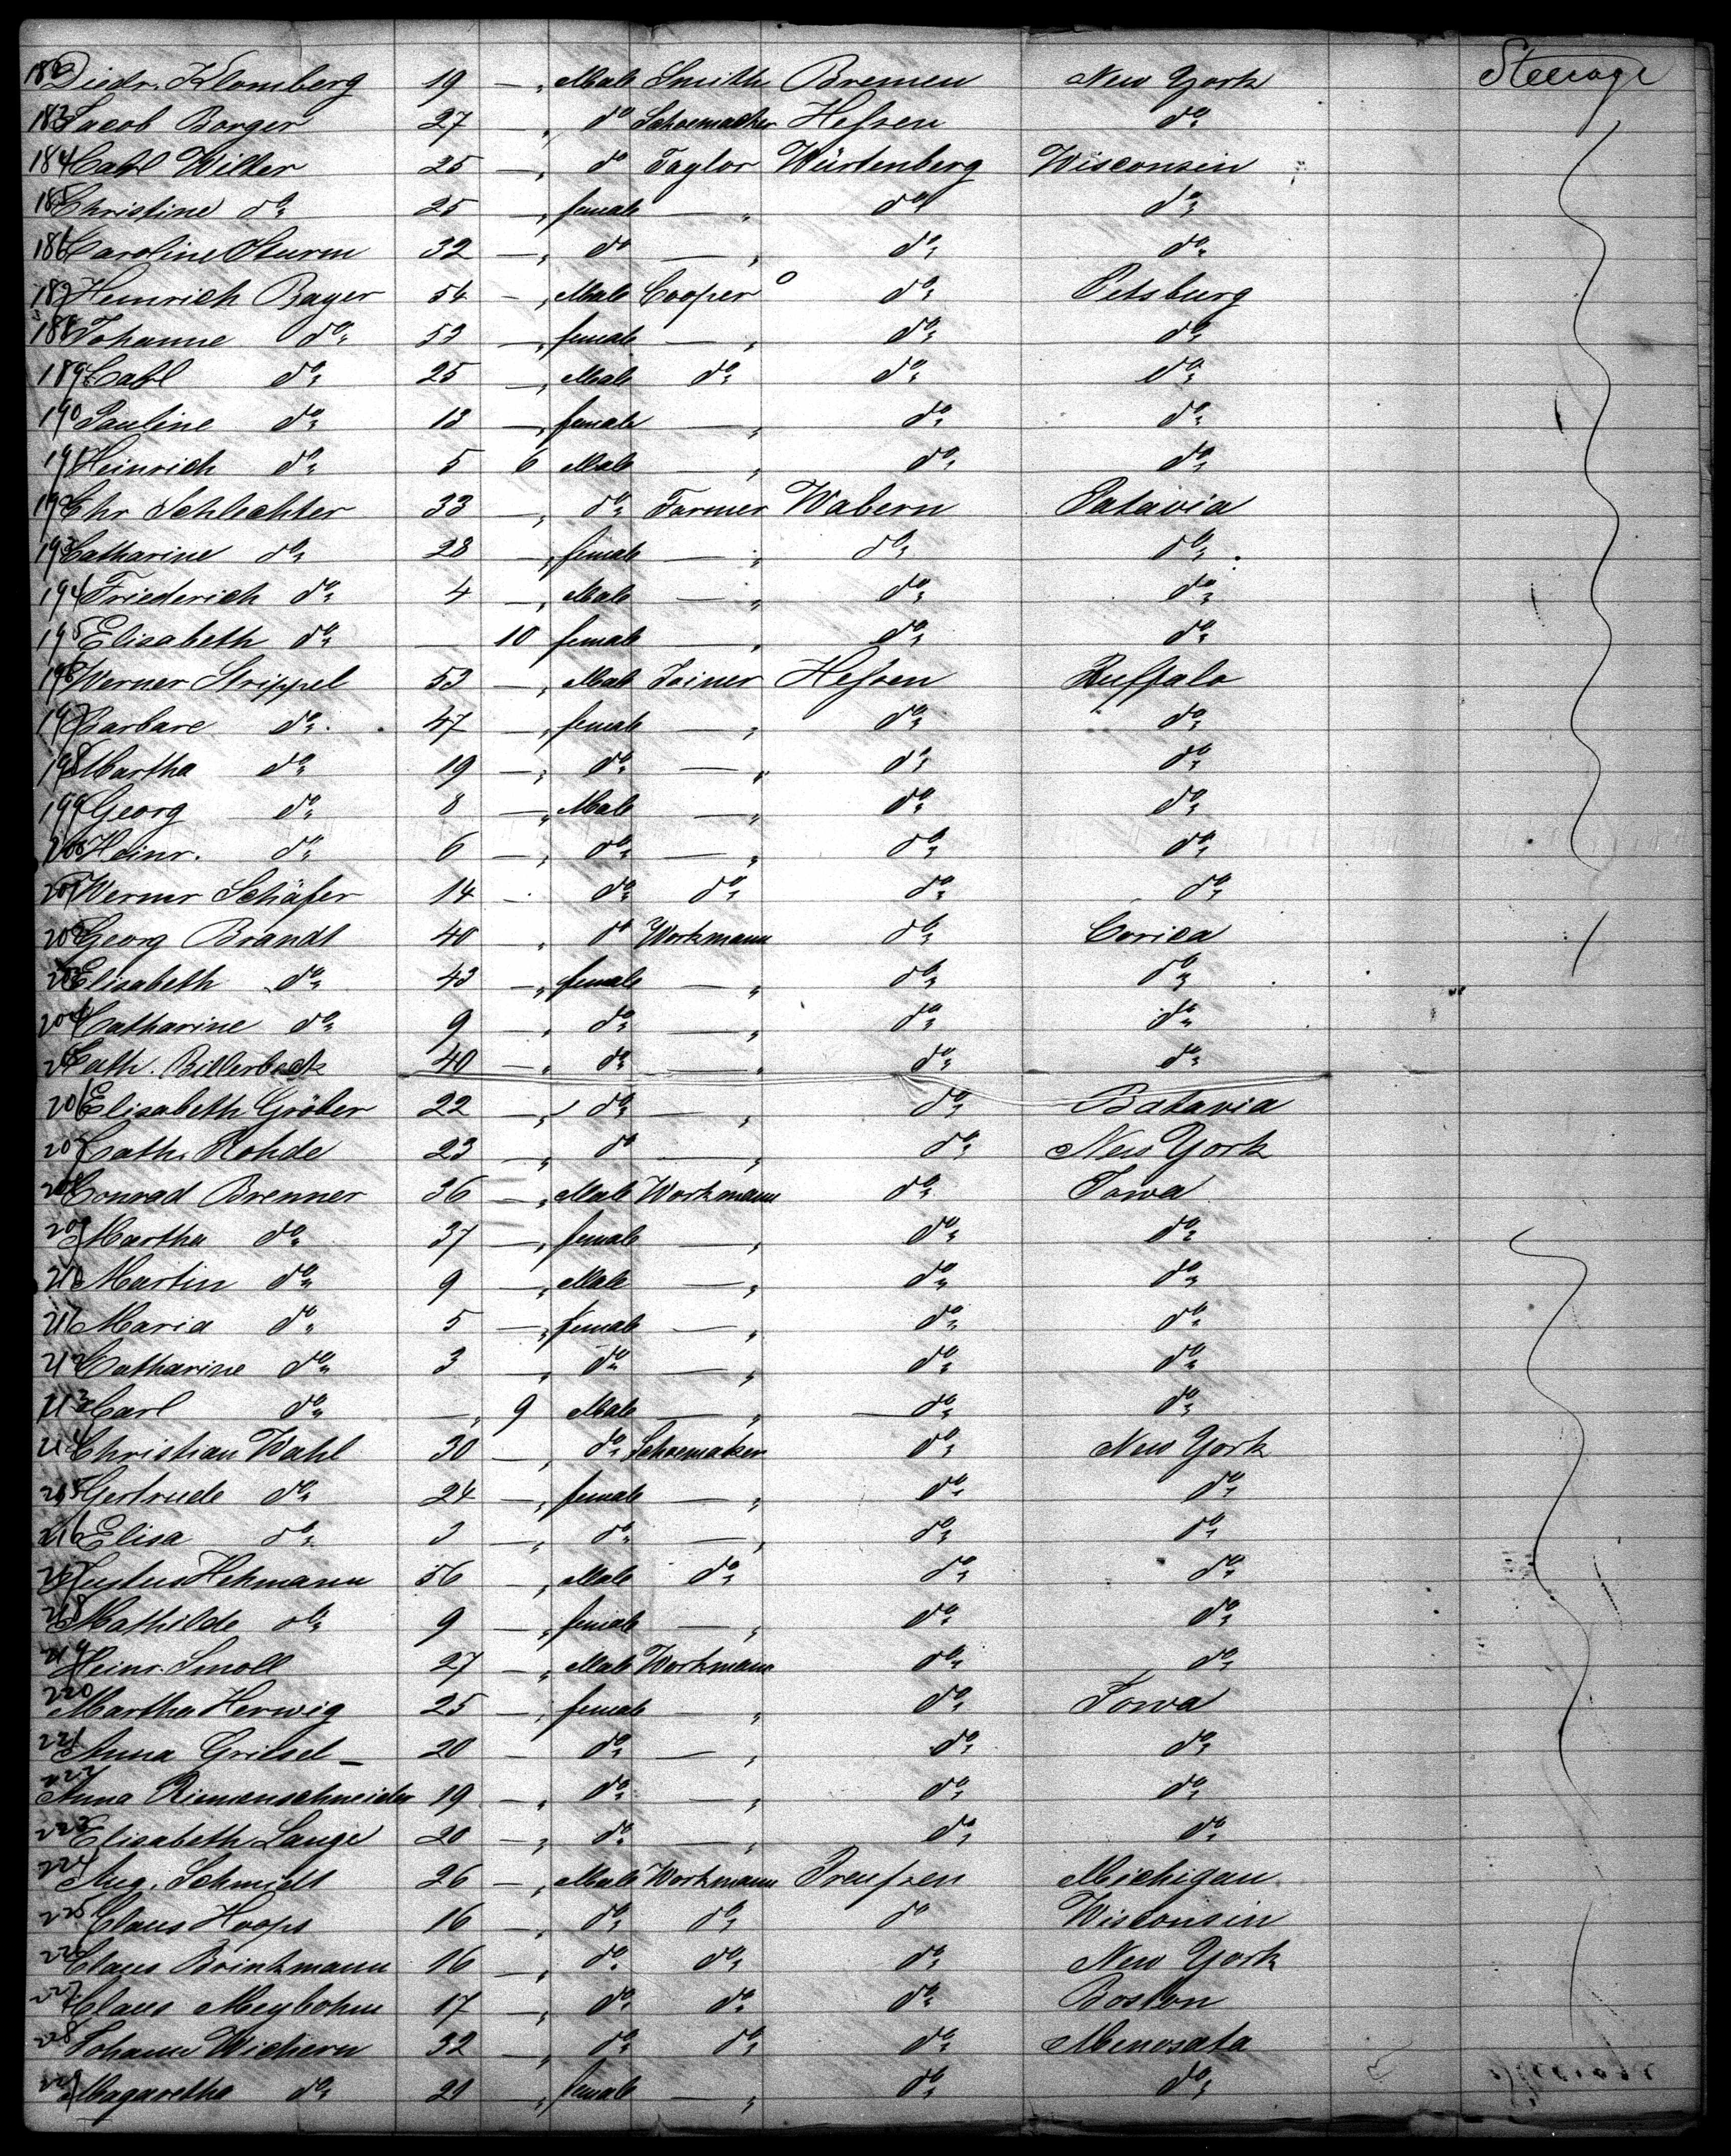 182 Diedr. Klomberg 19 — " Male Smith Bremen New York Steerage
183 Jacob Borger 27 " do Schoemacker Hessen do
184 Carl Wilker 25 — " do Taylor Würtenberg Wisconsin
185 Christine do 25 — " female — " do do
186 Caroline Sturm 32 — " do — " do do
187 Heinrich Bayer 54 - " Male Cooper do Pitsburg
188 Johanne do 53 — " female — " do do
189 Carl do 25 — " Male do do do
190 Pauline do 13 — " female — " do do
191 Heinrich do 5 6 Male — " do do
192 Chr Schlechter 33 — " do Farmer Wabern Patavia
193 Catharine do 28 — " female — " do do
194 Friederich do 4 — " Male — " do do
195 Elisabeth do — 10 female — " do do
196 Werner Strippel 53 — " Male Joiner Hessen Buffalo
197 Barbare do 47 — " female — " do do
198 Martha do 19 — " do — " do do
199 Georg do 8 — " Male — " do do
200 Heinr. do 6 — " do — " do do
201 Werner Schäfer 14 - do do do do
202 Georg Brandt 40 " do Workmann do Corica
203 Elisabeth do 43 — " female — " do do
204 Catharine do 9 — " do — " do do
205 Cath. Billerbeck 40 — " do — " do do
206 Elisabeth Gröber 22 — " do — " do Batavia
207 Cath. Rohde 23 — " do — " do New York
208 Conrad Brenner 36 — " Male Workmann do Iowa
209 Martha do 37 — " female — " do do
210 Martin do 9 — " Male — " do do
211 Maria do 5 — " female — " do do
212 Catharine do 3 — " do — " do do
213 Carl do — " 9 Male — " do do
214 Christian Wahl 30 — " do Schoemaker do New York
215 Gertrude do 24 — " female — " do do
216 Elisa do 3 — " do — " do do
217 Justus Hehmann 56 — " Male do do do
218 Mathilde do 9 — " female — " do do
219 Heinr. Smoll 27 — " Male Workmann do do
220 Martha Herwig 25 — " female — " do Iowa
221 Anna Griesel 20 — do — " do do
222 Anna Riemenschneider 19 — " do — " do do
223 Elisabeth Lange 20 — " do — " do do
224 Aug. Schmidt 26 — " Male Workmann Preussen Michigan
225 Claus Hoops 16 — " do do do Wisconsin
226 Claus Brinkmann 16 — " do do do New York
227 Claus Meybohm 17 — " do do do Boston
228 Johann Wichern 32 — " do do do Menosata
229 Magaretha do 29 — " female — " do do